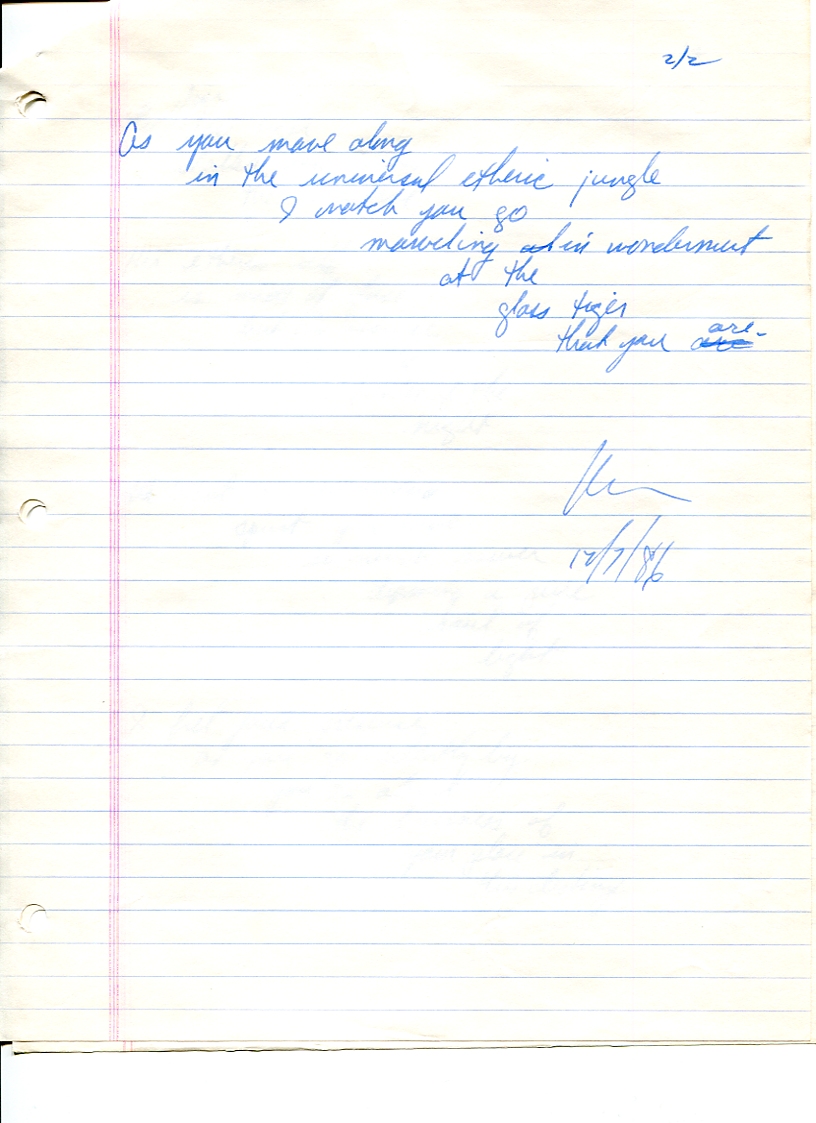 2/2
As you move along
in the universal etheric jungle
I watch you go
marveling at in wonderment
at the
glass tiger
that you are
are.
12/7/86